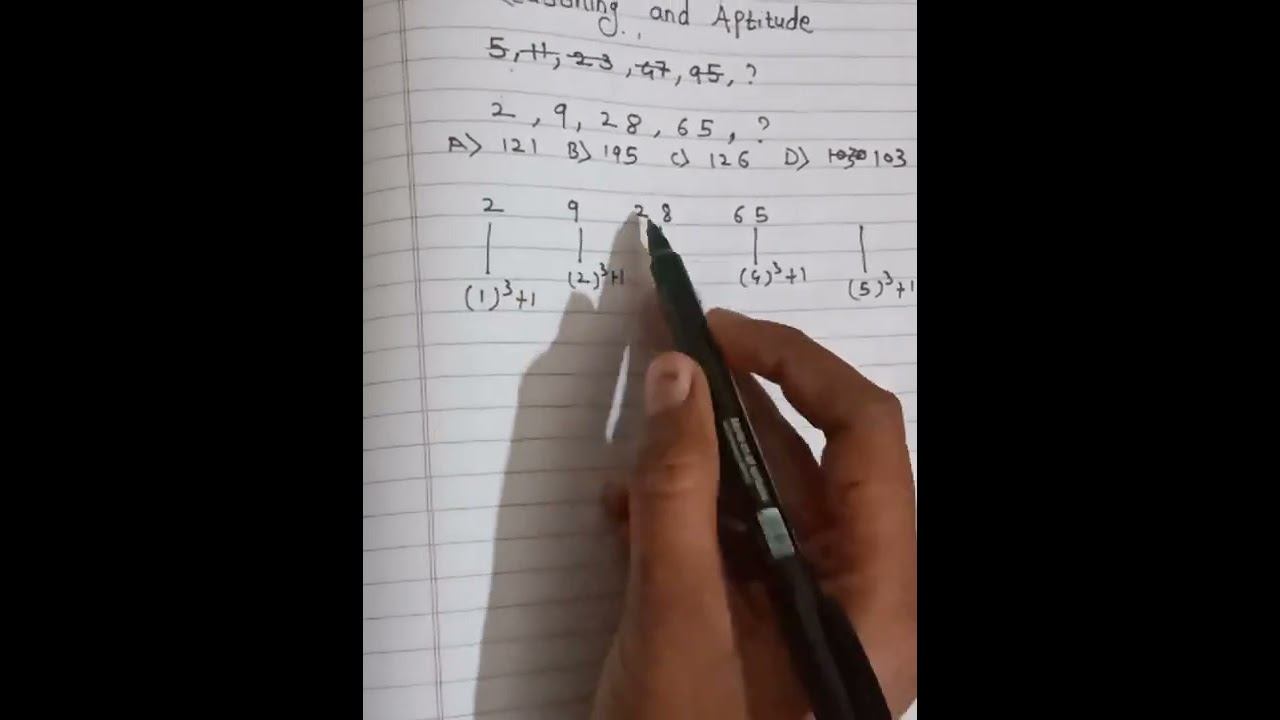 and Aptitude
5, 11, 23, 47, 95, ?
2, 9, 28, 65, ?
A) 121 B) 195 C) 126 D) 103
2 9 28 65
(1)³+1 (2)³+1 (4)³+1 (5)³+1